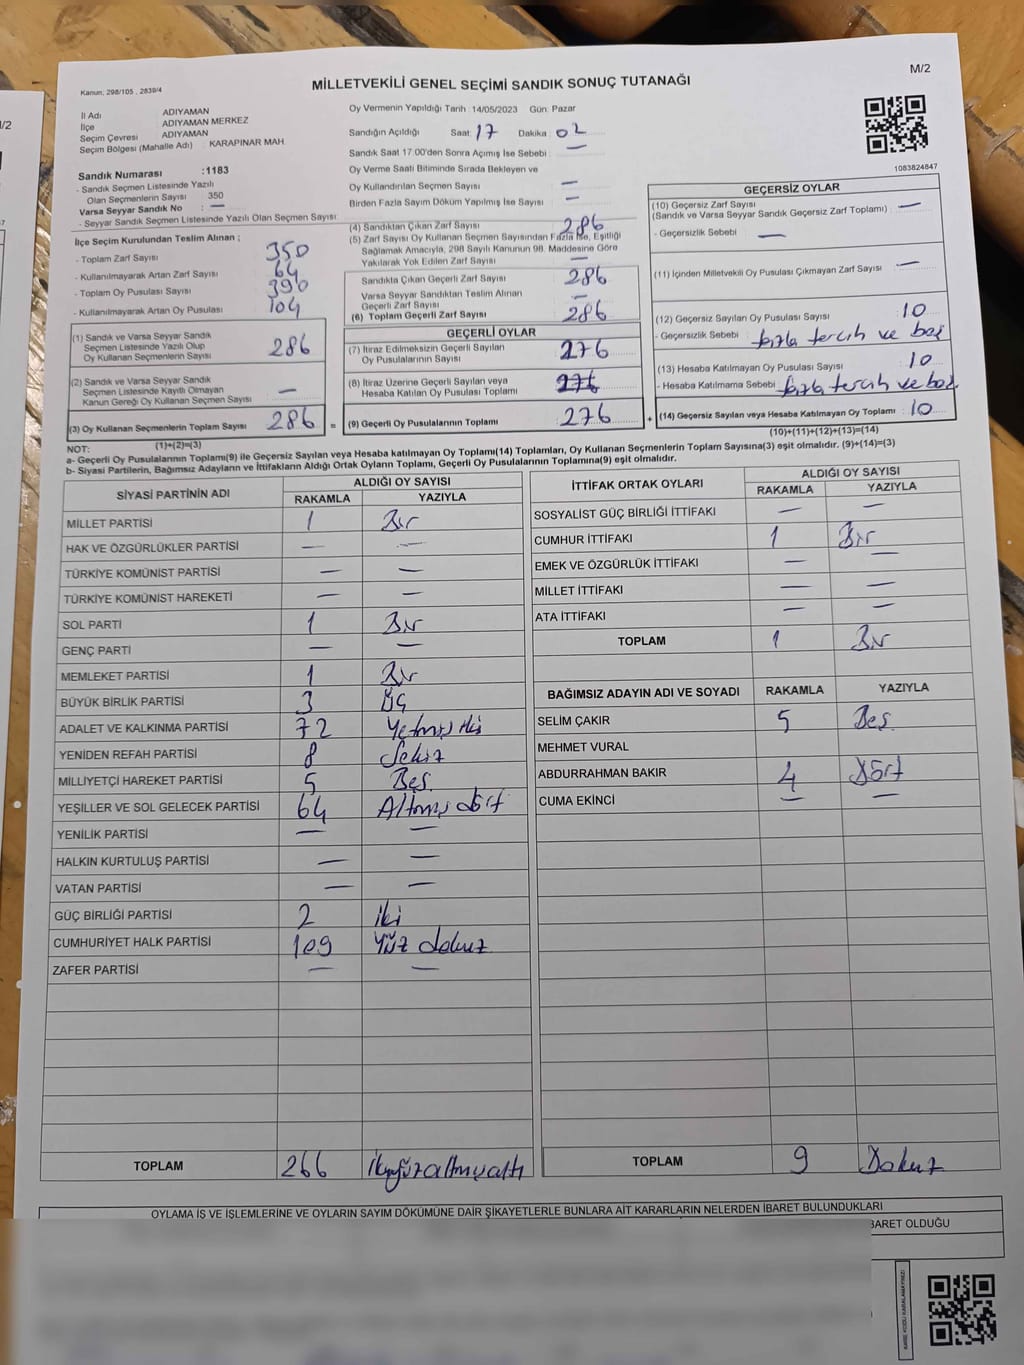 M/2
Kanun, 298/105 , 2839/4
MİLLETVEKİLİ GENEL SEÇİMİ SANDIK SONUÇ TUTANAĞI
İl Adı ADIYAMAN
İlçe ADIYAMAN MERKEZ
Seçim Çevresi ADIYAMAN
Seçim Bölgesi (Mahalle Adı) : KARAPINAR MAH.
Sandık Numarası :1183
- Sandık Seçmen Listesinde Yazılı
Olan Seçmenlerin Sayısı 350
Varsa Seyyar Sandık No : —
- Seyyar Sandık Seçmen Listesinde Yazılı Olan Seçmen Sayısı
İlçe Seçim Kurulundan Teslim Alınan ;
- Toplam Zarf Sayısı 350
- Kullanılmayarak Artan Zarf Sayısı 64
- Toplam Oy Pusulası Sayısı 390
- Kullanılmayarak Artan Oy Pusulası 104
(1) Sandık ve Varsa Seyyar Sandık
Seçmen Listesinde Yazılı Olup
Oy Kullanan Seçmenlerin Sayısı 286
(2) Sandık ve Varsa Seyyar Sandık
Seçmen Listesinde Kayıtlı Olmayan
Kanun Gereği Oy Kullanan Seçmen Sayısı —
(3) Oy Kullanan Seçmenlerin Toplam Sayısı 286 =
(1)+(2)=(3)
Oy Vermenin Yapıldığı Tarih : 14/05/2023 Gün: Pazar
Sandığın Açıldığı Saat: 17 Dakika : 02
Sandık Saat 17.00'den Sonra Açımış İse Sebebi : —
Oy Verme Saati Bitiminde Sırada Bekleyen ve
Oy Kullandırılan Seçmen Sayısı —
Birden Fazla Sayım Döküm Yapılmış İse Sayısı : —
(4) Sandıktan Çıkan Zarf Sayısı 286
(5) Zarf Sayısı Oy Kullanan Seçmen Sayısından Fazla İse, Eşitliği
Sağlamak Amacıyla, 298 Sayılı Kanunun 98. Maddesine Göre
Yakılarak Yok Edilen Zarf Sayısı —
Sandıkta Çıkan Geçerli Zarf Sayısı 286
Varsa Seyyar Sandıktan Teslim Alınan
Geçerli Zarf Sayısı —
(6) Toplam Geçerli Zarf Sayısı 286
GEÇERLİ OYLAR
(7) İtiraz Edilmeksizin Geçerli Sayılan
Oy Pusulalarının Sayısı 276
(8) İtiraz Üzerine Geçerli Sayılan veya
Hesaba Katılan Oy Pusulası Toplamı 276
(9) Geçerli Oy Pusulalarının Toplamı 276 +
1083824847
GEÇERSİZ OYLAR
(10) Geçersiz Zarf Sayısı —
(Sandık ve Varsa Seyyar Sandık Geçersiz Zarf Toplamı) :
- Geçersizlik Sebebi : —
(11) İçinden Milletvekili Oy Pusulası Çıkmayan Zarf Sayısı : —
(12) Geçersiz Sayılan Oy Pusulası Sayısı : 10
- Geçersizlik Sebebi : fazla tercih ve boş
(13) Hesaba Katılmayan Oy Pusulası Sayısı : 10
- Hesaba Katılmama Sebebi : fazla tercih ve boş
(14) Geçersiz Sayılan veya Hesaba Katılmayan Oy Toplamı : 10
(10)+(11)+(12)+(13)=(14)
NOT:
a- Geçerli Oy Pusulalarının Toplamı(9) ile Geçersiz Sayılan veya Hesaba katılmayan Oy Toplamı(14) Toplamları, Oy Kullanan Seçmenlerin Toplam Sayısına(3) eşit olmalıdır. (9)+(14)=(3)
b- Siyasi Partilerin, Bağımsız Adayların ve İttifakların Aldığı Ortak Oyların Toplamı, Geçerli Oy Pusulalarının Toplamına(9) eşit olmalıdır.
SİYASİ PARTİNİN ADI ALDIĞI OY SAYISI
RAKAMLA YAZIYLA
MİLLET PARTİSİ 1 Bir
HAK VE ÖZGÜRLÜKLER PARTİSİ — —
TÜRKİYE KOMÜNİST PARTİSİ — —
TÜRKİYE KOMÜNİST HAREKETİ — —
SOL PARTİ 1 Bir
GENÇ PARTİ — —
MEMLEKET PARTİSİ 1 Bir
BÜYÜK BİRLİK PARTİSİ 3 Üç
ADALET VE KALKINMA PARTİSİ 72 Yetmiş iki
YENİDEN REFAH PARTİSİ 8 Sekiz
MİLLİYETÇİ HAREKET PARTİSİ 5 Beş
YEŞİLLER VE SOL GELECEK PARTİSİ 64 Altmış dört
YENİLİK PARTİSİ — —
HALKIN KURTULUŞ PARTİSİ — —
VATAN PARTİSİ — —
GÜÇ BİRLİĞİ PARTİSİ 2 iki
CUMHURİYET HALK PARTİSİ 109 Yüz dokuz
ZAFER PARTİSİ — —
TOPLAM 266 ikiyüzaltmışaltı
İTTİFAK ORTAK OYLARI ALDIĞI OY SAYISI
RAKAMLA YAZIYLA
SOSYALİST GÜÇ BİRLİĞİ İTTİFAKI — —
CUMHUR İTTİFAKI 1 Bir
EMEK VE ÖZGÜRLÜK İTTİFAKI — —
MİLLET İTTİFAKI — —
ATA İTTİFAKI — —
TOPLAM 1 Bir
BAĞIMSIZ ADAYIN ADI VE SOYADI RAKAMLA YAZIYLA
SELİM ÇAKIR 5 Beş
MEHMET VURAL
ABDURRAHMAN BAKIR 4 Dört
CUMA EKİNCİ — —
TOPLAM 9 Dokuz
OYLAMA İŞ VE İŞLEMLERİNE VE OYLARIN SAYIM DÖKÜMÜNE DAİR ŞİKAYETLERLE BUNLARA AİT KARARLARIN NELERDEN İBARET BULUNDUKLARI
BARET OLDUĞU